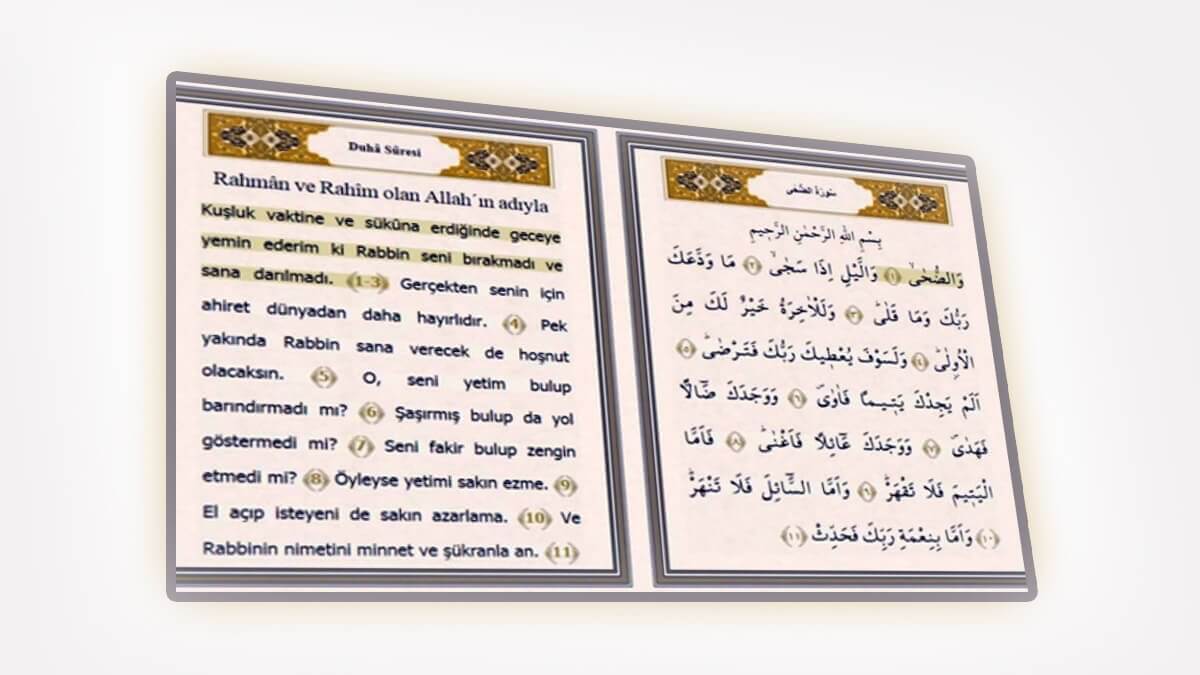 Duhâ Sûresi
Rahmân ve Rahîm olan Allah´ın adıyla
Kuşluk vaktine ve sükûna erdiğinde geceye
yemin ederim ki Rabbin seni bırakmadı ve
sana darılmadı. (1-3) Gerçekten senin için
ahiret dünyadan daha hayırlıdır. (4) Pek
yakında Rabbin sana verecek de hoşnut
olacaksın. (5) O, seni yetim bulup
barındırmadı mı? (6) Şaşırmış bulup da yol
göstermedi mi? (7) Seni fakir bulup zengin
etmedi mi? (8) Öyleyse yetimi sakın ezme. (9)
El açıp isteyeni de sakın azarlama. (10) Ve
Rabbinin nimetini minnet ve şükranla an. (11)
سُورَةُ الضُّحٰى
بِسْمِ اللّٰهِ الرَّحْمٰنِ الرَّح۪يمِ
وَالضُّحٰىۙ ﴿١﴾ وَالَّيْلِ اِذَا سَجٰىۙ ﴿٢﴾ مَا وَدَّعَكَ
رَبُّكَ وَمَا قَلٰىۜ ﴿٣﴾ وَلَلْاٰخِرَةُ خَيْرٌ لَكَ مِنَ
الْاُو۫لٰىۜ ﴿٤﴾ وَلَسَوْفَ يُعْط۪يكَ رَبُّكَ فَتَرْضٰىۜ ﴿٥﴾
اَلَمْ يَجِدْكَ يَت۪يماً فَاٰوٰىۖ ﴿٦﴾ وَوَجَدَكَ ضَٓالاًّ
فَهَدٰىۖ ﴿٧﴾ وَوَجَدَكَ عَٓائِلاً فَاَغْنٰىۜ ﴿٨﴾ فَاَمَّا
الْيَت۪يمَ فَلَا تَقْهَرْۜ ﴿٩﴾ وَاَمَّا السَّٓائِلَ فَلَا تَنْهَرْۜ
﴿١٠﴾ وَاَمَّا بِنِعْمَةِ رَبِّكَ فَحَدِّثْ ﴿١١﴾